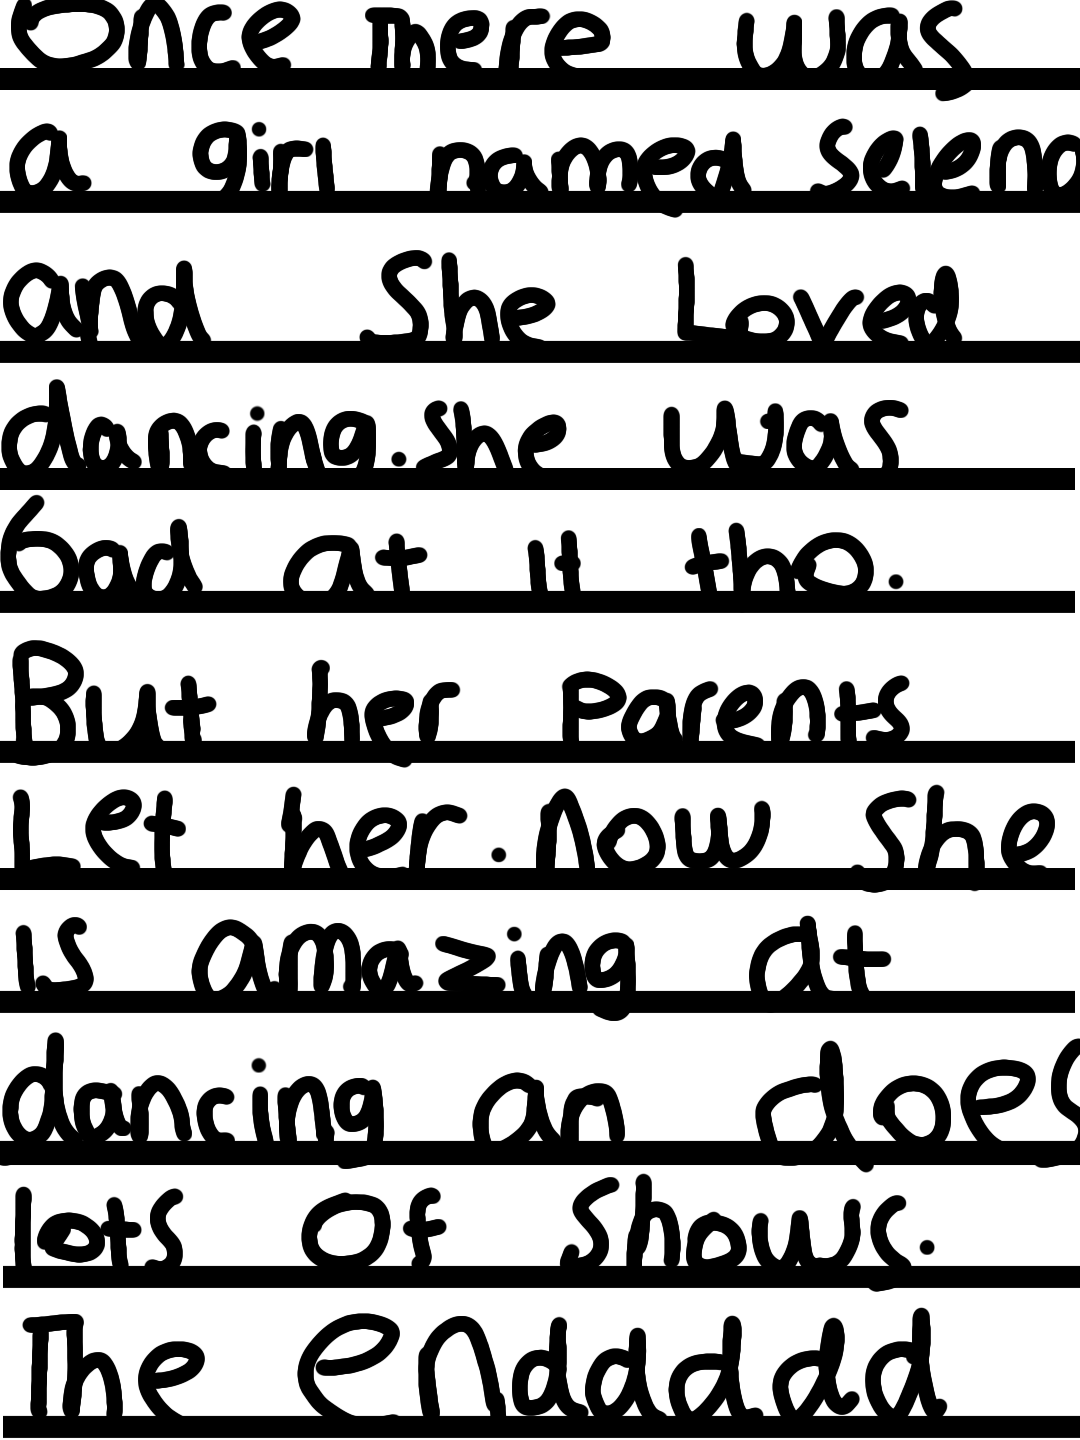 Once There was
a girl named Selena
and She Loved
dancing. She was
bad at it tho.
But her Parents
Let her. now She
is amazing at
dancing an does
lots Of Shows.
The Enddddd